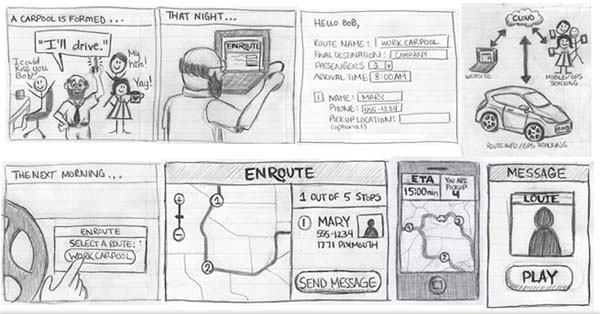 A CARPOOL IS FORMED...
I could
kiss you
Bob!
"I'll drive."
My
hero!
Yay!
THAT NIGHT...
ENROUTE
HELLO BOB,
ROUTE NAME: WORK CARPOOL
FINAL DESTINATION: COMPANY
PASSENGERS 3
ARRIVAL TIME 8:00AM
1 NAME: MARY
PHONE: 555-1234
PICKUP LOCATION:
(optional)
CLOUD
WEBSITE
MOBILE/GPS
TRACKING
ROUTE INFO/GPS TRACKING
THE NEXT MORNING...
ENROUTE
SELECT A ROUTE:
WORK CARPOOL
ENROUTE
+
-
1
2
1 OUT OF 5 STOPS
1 MARY
555-1234
1771 PLYMOUTH
SEND MESSAGE
ETA
15:00min
YOU ARE
PICKUP
4
1
2
3
MESSAGE
LOUIE
PLAY